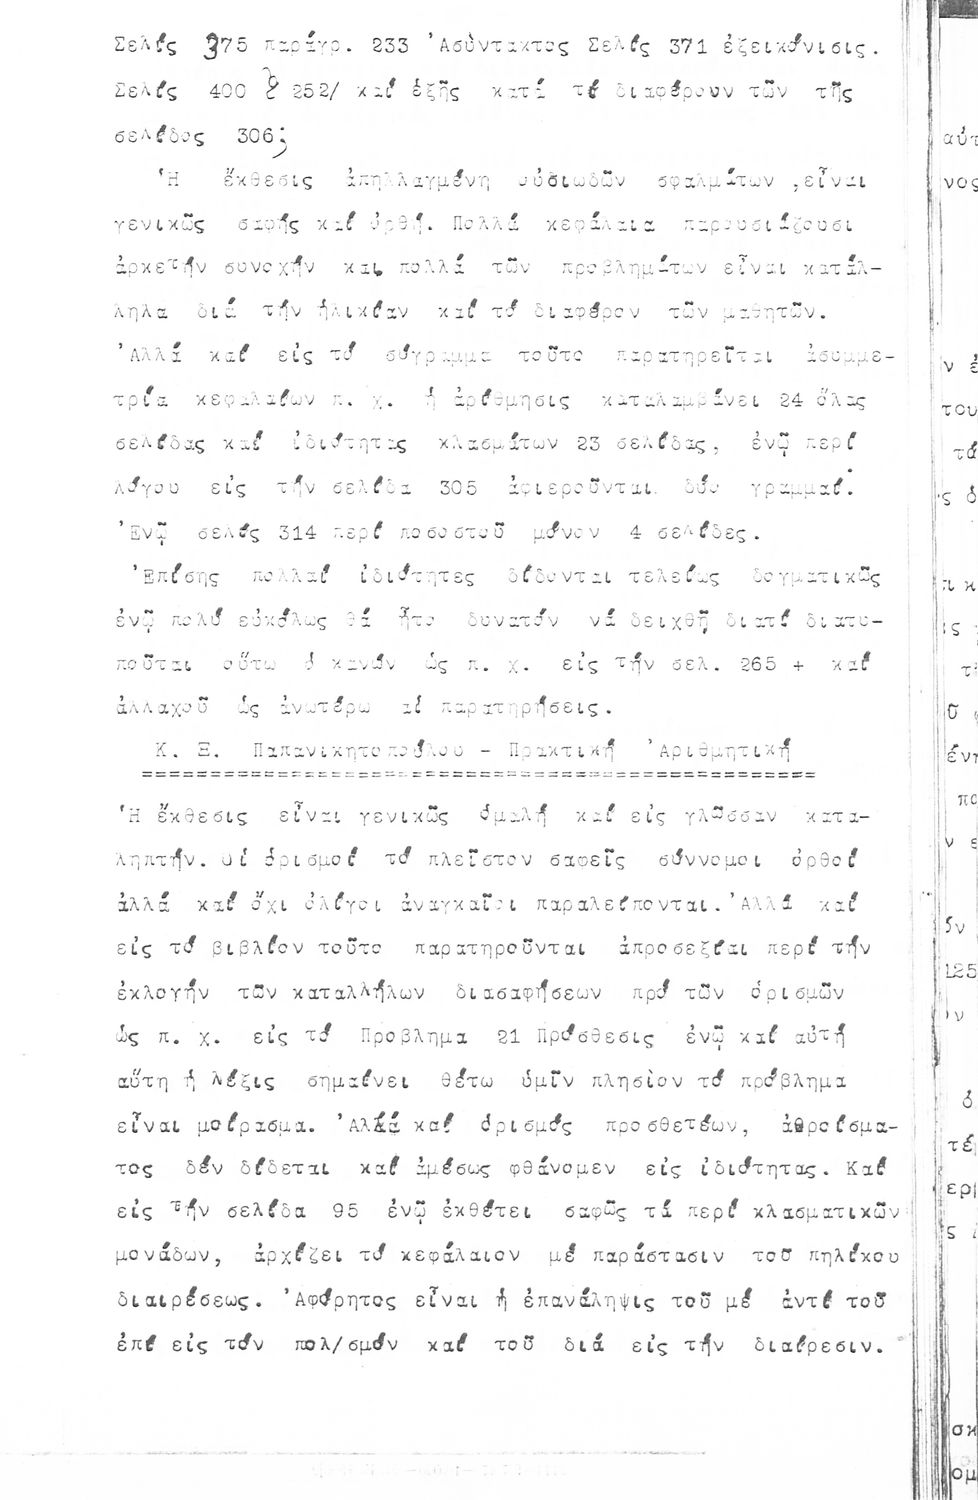 Σελίς 375 παράγρ. 233 Ἀσύντακτος Σελίς 371 ἐξεικόνισις.
Σελίς 400 § 252/ καί ἑξῆς κατά τί διαφέρουν τῶν τῆς
σελίδος 306;
Ἡ ἔκθεσις ἀπηλλαγμένη οὐσιωδῶν σφαλμάτων ,εἶναι
γενικῶς σαφής καί ὀρθή. Πολλά κεφάλαια παρουσιάζουσι
ἀρκετήν συνοχήν και πολλά τῶν προβλημάτων εἶναι κατάλ-
ληλα διά τήν ἡλικίαν καί τό διαφέρον τῶν μαθητῶν.
Ἀλλά καί εἰς τό σύγραμμα τοῦτο παρατηρεῖται ἀσυμμε-
τρία κεφαλαίων π. χ. ἡ ἀρίθμησις καταλαμβάνει 24 ὅλας
σελίδας καί ἰδιότητας κλασμάτων 23 σελίδας, ἐνῷ περί
λόγου εἰς τήν σελίδα 305 ἀφιεροῦνται δύο γραμμαί.
Ἐνῷ σελίς 314 περί ποσοστοῦ μόνον 4 σελίδες.
Ἐπίσης πολλαί ἰδιότητες δίδονται τελείως δογματικῶς
ἐνῷ πολύ εὐκόλως θά ἦτο δυνατόν νά δειχθῇ διατί διατυ-
ποῦται οὕτω ὁ κανών ὡς π. χ. εἰς τήν σελ. 265 + καί
ἀλλαχοῦ ὡς ἀνωτέρω αἱ παρατηρήσεις.
Κ. Ξ. Παπανικητοπούλου - Πρακτική Ἀριθμητική
==================================================
Ἡ ἔκθεσις εἶναι γενικῶς ὁμαλή καί εἰς γλῶσσαν κατα-
ληπτήν. Οἱ ὁρισμοί τό πλεῖστον σαφεῖς σύννομοι ὀρθοί
ἀλλά καί ὄχι ὀλίγοι ἀναγκαῖοι παραλείπονται. Ἀλλά καί
εἰς τό βιβλίον τοῦτο παρατηροῦνται ἀπροσεξίαι περί τήν
ἐκλογήν τῶν καταλλήλων διασαφήσεων πρό τῶν ὁρισμῶν
ὡς π. χ. εἰς τό Προβλημα 21 Πρόσθεσις ἐνῷ καί αὐτή
αὕτη ἡ λέξις σημαίνει θέτω ὑμῖν πλησὶον τό πρόβλημα
εἶναι μοίρασμα. Ἀλλά καί ὁρισμός προσθετέων, ἀθροίσμα-
τος δέν δίδεται καί ἀμέσως φθάνομεν εἰς ἰδιότητας. Καί
εἰς τήν σελίδα 95 ἐνῷ ἐκθέτει σαφῶς τά περί κλασματικῶν
μονάδων, ἀρχίζει τό κεφάλαιον μέ παράστασιν τοῦ πηλίκου
διαιρέσεως. Ἀφόρητος εἶναι ἡ ἐπανάληψις τοῦ μέ ἀντί τοῦ
ἐπί εἰς τόν πολ/σμόν καί τοῦ διά εἰς τήν διαίρεσιν.